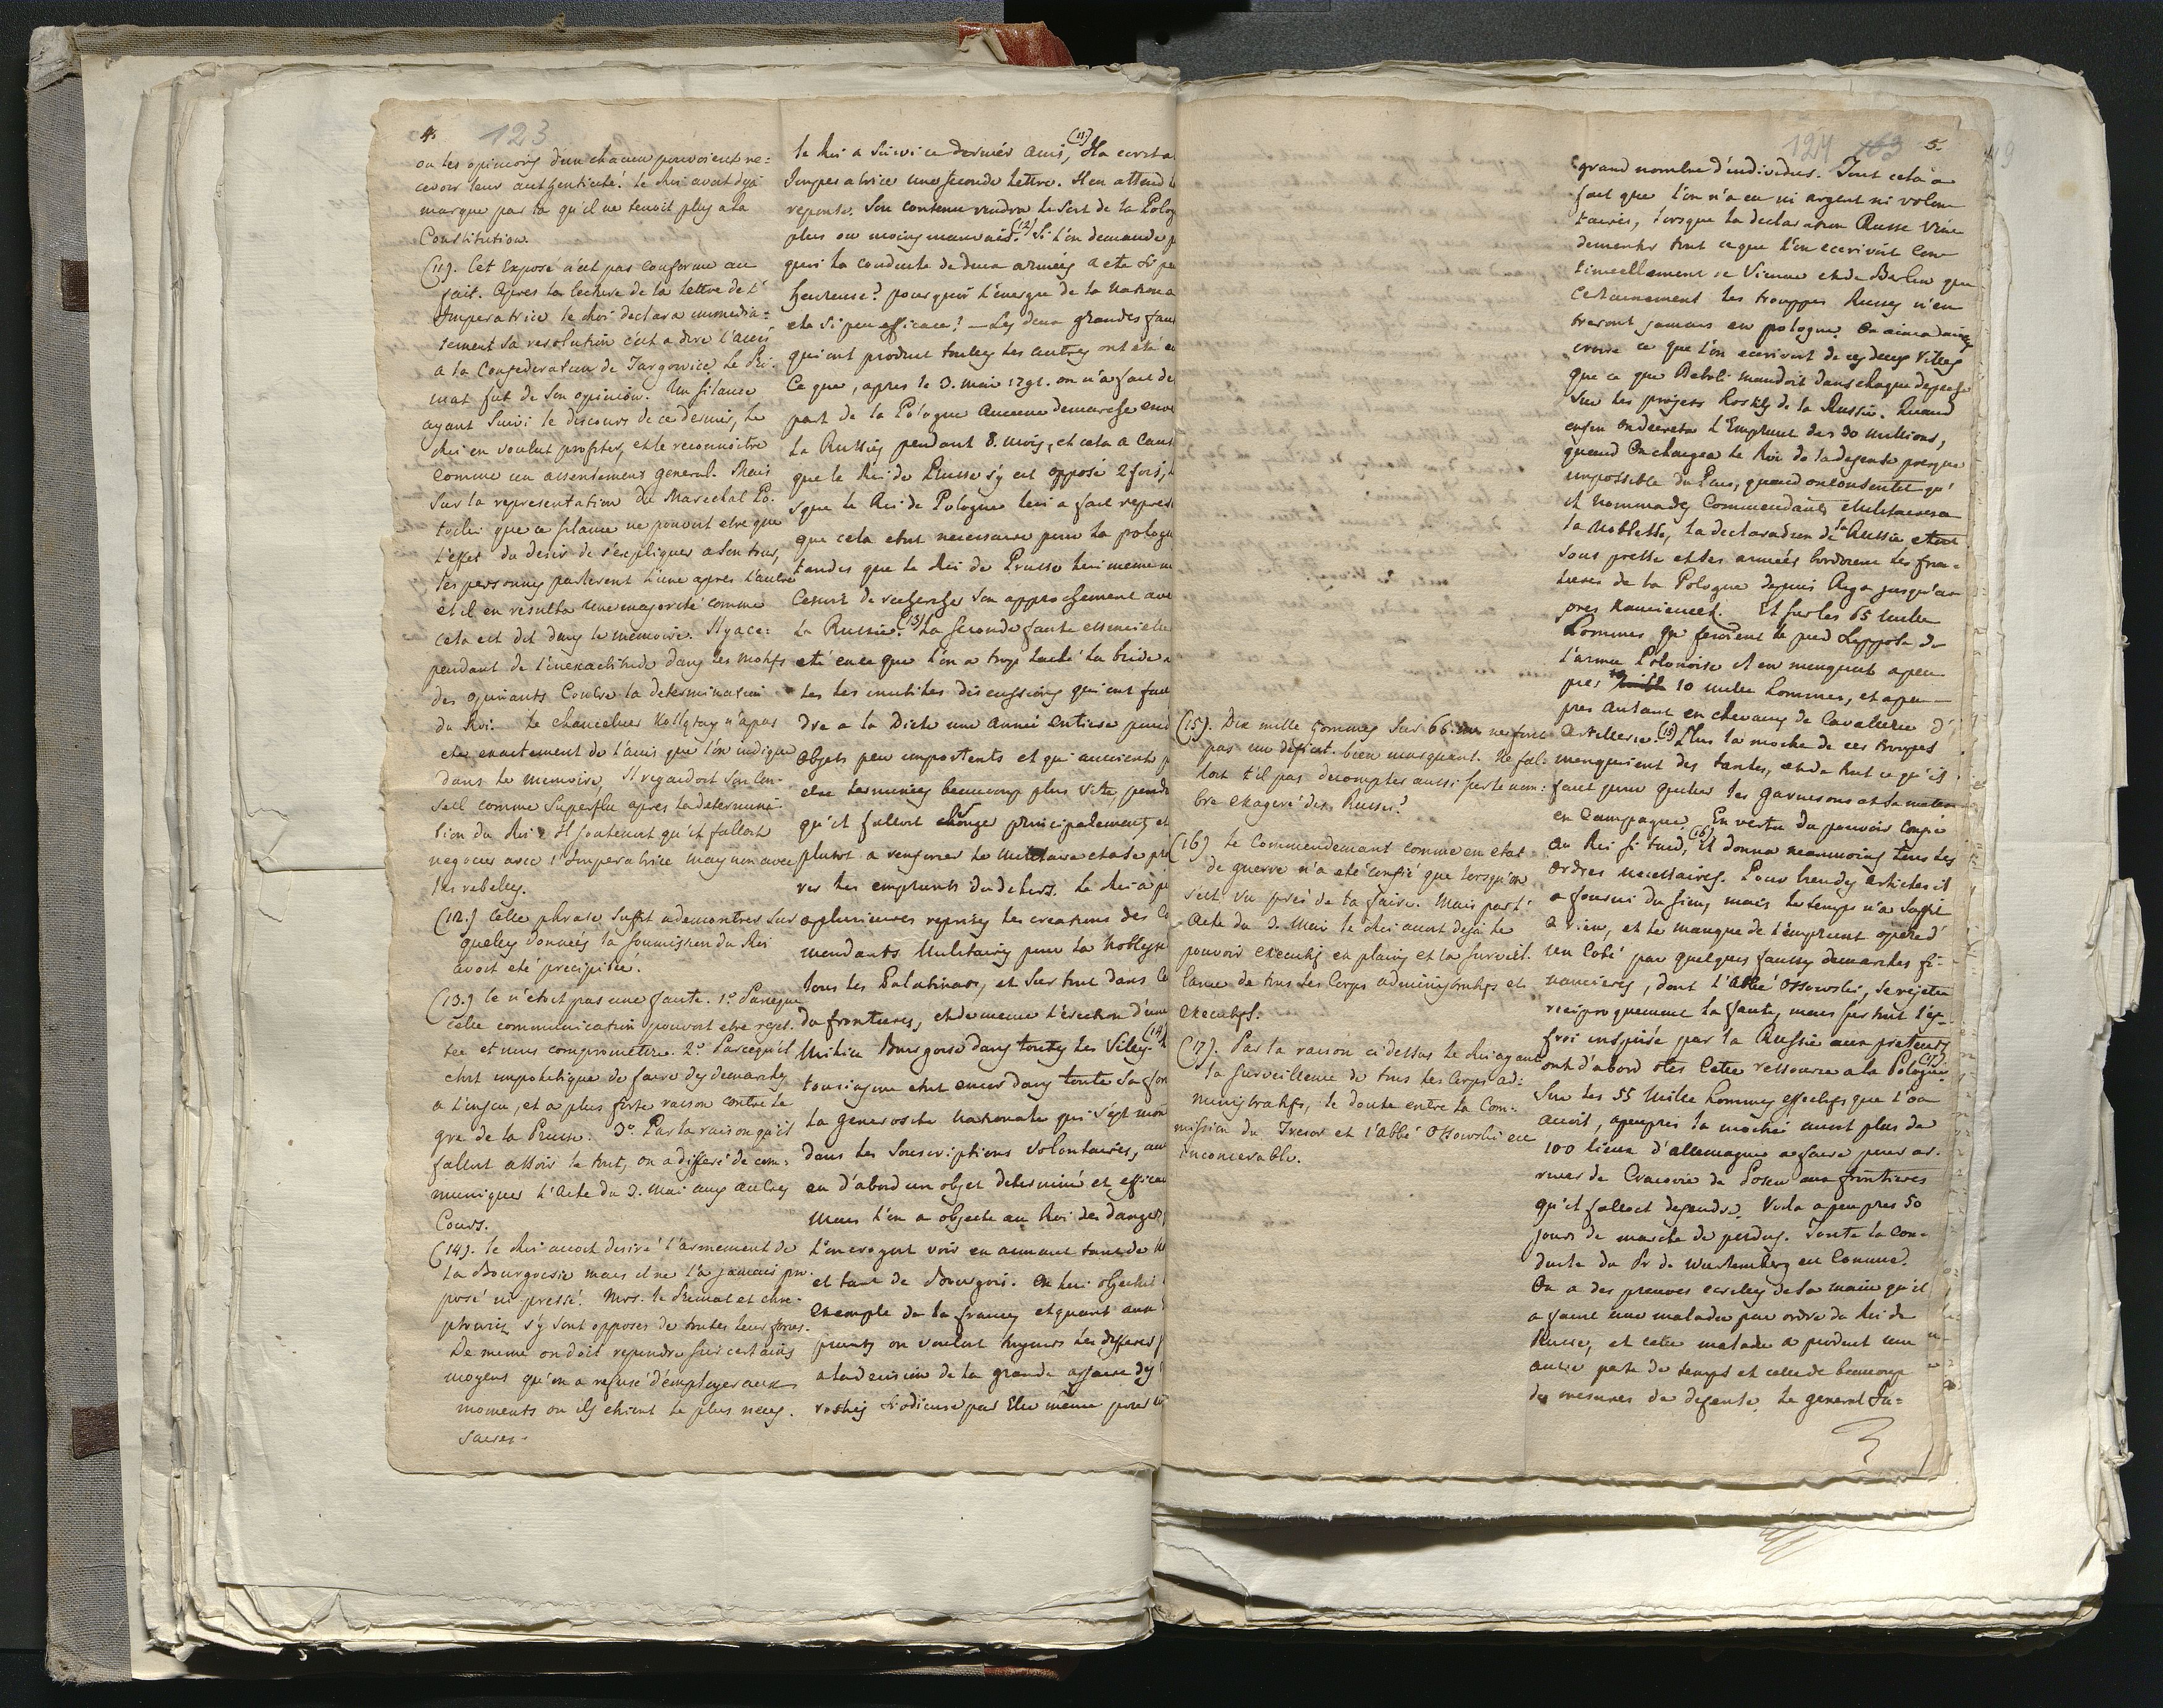 4.
123
ou les opinions d'un chacun pouvoient re=
cevoir leur authenticité! le Roi avoit deja
marque par la qu'il ne tenoit plus a la
Constitution.
(11). Cet Exposé n'est pas conforme au
fait. Apres la lecture de la lettre de l'
Imperatrice le Roi declara immedia=
tement sa resolution c'est a dire l'accès
a la Confederation de Targowice. Le Pri-
mat fut de son opinion. Un silence
ayant suivi le discours de ce dernier, le
Roi en voulut profiter, et le reconnoitre
comme un assentiment general. Mais
sur la representation du Marechal Po-
tocki que ce silence ne pouvoit etre que
l'effet du desir de s'expliquer a son tour,
les personnes parlerent l'une apres l'autre
et il en resulta une majorité comme
cela est dit dans le memoire. Il y a ce=
pendant de l'inexactitude dans les motifs
des opinants contre la determination
du Roi. Le chancelier Kollątay n'a pas
eté exactement de l'avis que l'on indique
dans le memoire, Il regardoit son Con-
seil comme superflu apres la determina-
tion du Roi. Il soutenoit qu'il falloit
negocier avec l'Imperatrice mais non avec
les rebelles.
(12.) Cette phrase suffit a demontrer sur
quelles données la soumission du Roi
avoit eté precipitée.
(13.) Ce n'etoit pas une faute. 1.º Parceque
cette communication pouvoit etre rejet-
tée et nous compromettre. 2.º Parcequ'il
etoit impolitique de faire des demarches
a l'inscu, et a plus forte raison contre le
gré de la Prusse. 3.º Par la raison qu'il
falloit assoir le tout, on a differé de com=
muniquer l'Acte du 3. Mai aux autres
Cours.
(14). le Roi avoit desiré l'armement de
la Bourgeoisie mais il ne l'a jamais pro-
posé ni pressé. Mrs. le Primat et Chre-
ptowicz s'y sont opposes de toutes leurs forces.
De meme on doit repondre sur certains
moyens qu'on a refusé d'employer aux
moments ou ils etoient le plus neces-
saires.
le Roi a suivi ce dernier avis, (11.) Il a ecrit a
Imperatrice une seconde lettre. Il en attend l
reponse. Son contenu rendra le sort de la Polog
plus ou moins mauvais. (12) Si l'on demande p
quoi la conduite de deux armées a eté si peu
heureuse? pourquoi l'energie de la Nation a
eté si peu efficace? — Les deux grandes faut
qui ont produit toutes les autres ont eté en
Ce que, apres le 3. Mai 1791. on n'a fait de
part de la Pologne aucune demarche enve
la Russie, pendant 8. mois, et cela a caus
que le Roi de Prusse s'y est opposé 2 fois, l
sque le Roi de Pologne lui a fait repres
que cela etoit necessaire pour la Pologn
tandis que le Roi de Prusse lui meme n
cessoit de rechercher son approchement avec
la Russie. (13) La seconde faute essentielle
eté en ce que l'on a trop laché la bride a
tes les inutiles discussions qui ont fait
dre a la Diete une Année entiere pour
Objets peu importants et qui auroient p
etre terminés beaucoup plus vite, pend
qu'il falloit songer principalement et
plutot a renforcer le Militaire et a se pro
rer les emprunts du dehors. Le Roi a p
a plusieures reprises les creations des Co
mendants Militaires pour la Noblesse
tous les Palatinats, et sur tout dans Ce
des frontieres, et de meme l'érection d'une
Milice Bourgoise dans toutes les Viles. (14) L
tousiasme etoit encor dans toute sa for
la generosité Nationale qui s'est mon
dans les Souscriptions Volontaires, aur
eu d'abord un objet determiné et efficac
Mais l'on a objecté au Roi des dangers
l'on croyoit voir en armant tant de N
et tant de Bourgois. On lui objectoit
exemple de la france, et quant aux
prunts on voulut toujours les differer j
a la decision de la grande affaire des
rosties si odieuse par Elle même pour un
124 163 5.
(15). Dix mille hommes sur 65. mi ne font
pas un deficit bien marquant. Ne fal-
loit t'il pas decompter aussi sur le nom=
bre exageré des Russes?
(16) le Commendement comme en etat
de guerre n'a eté confié que lorsqu'on
s'est vu près de la faire. Mais par l'
Acte du 3. Mai le Roi avoit deja le
pouvoir executif en plains et la surveil-
lance de tous les Corps administratifs et
executifs.
(17). Par la raison ci dessus le Roi ayant
la surveillence de tous les Corps ad=
ministratifs, le doute entre la Com=
mission du Tresor et l'abbé Ossowski est
inconcevable.
grand nombre d'individus. Tout cela a
fait que l'on n'a eu ni argent ni volon-
taires, lorsque la declaration Russe vint
dementir tout ce que l'on ecrivoit con-
tinuellement de Vienne et de Berlin que
Certainement les trouppes Russes n'en-
treront jamais en pologne. On aima mieux
croire ce que l'on ecrivoit de ces deux Villes
que ce que Deboli mandoit dans chaque depeche
sur les projets hostiles de la Russie. Quand
enfin on decreta l'Emprunt des 30 Millions,
quand on chargea le Roi de la defense presque
impossible du Pais, quand on consentit qu'
il nommat des Commendants Militaires a
la Noblesse, la declaration de la Russie etoit
sous presse et les armées bordoient les fron-
tieres de la Pologne depuis Riga jusqu'au
pres Kamieniec. Et sur les 65 mille
hommes qui feroient le pied supposé de
l'armée Polonoise il en manquoit a peu
près 10 mille hommes, et a peu
près autant en chevaux de Cavalerie d'
Artillerie. (15) Plus la moitié de ces troupes
manquoient des tentes, et de tout ce qu'il
faut pour quitter les garnisons et se mettre
en Campagne. En vertu du pouvoir confié
au Roi si tard, (16) il donna neanmoins tous les
ordres necessaires. Pour trendes articles il
a fourni du sien, mais le temps n'a suffi
a rien, et le manque de l'emprunt operé d'
un Coté par quelques fausses demarches fi-
nancieres, dont l'Abbé Ossowski, se rejette
reciproquement la faute, mais sur tout l'ef-
froi inspirée par la Russie aux preteurs
ont d'abord otés Cette ressource a la Pologne. (17)
Sur les 55 Mille hommes effectifs que l'on
avoit, apeupres la moitié avoit plus de
100 lieux d'allemagne a faire pour ar-
river de Cracovie de Posen aux frontieres
qu'il falloit defendre. Voila apeupres 50
jours de marche de perdus. Toute la Con-
duite du Pr de Wurtemberg est Connue.
On a des preuves ecrites de sa main qu'il
a feint une maladie par ordre du Roi de
Prusse, et cette maladie a produit une
autre perte de temps et celle de beaucoup
des mesures de defense. Le general Ju=